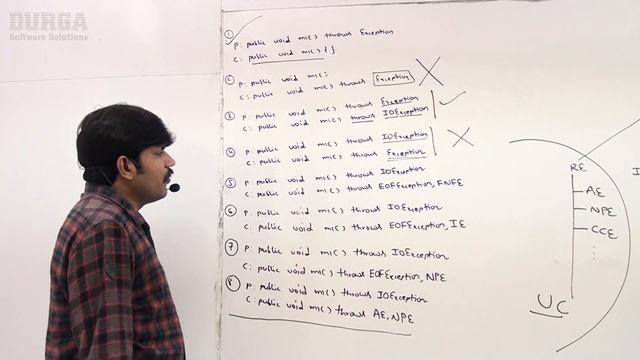 DURGA
Software Solutions
① P: public void m1() throws Exception
C: public void m1() { }
② P: public void m1();
C: public void m1() throws Exception
③ P: public void m1() throws Exception
C: public void m1() throws IOException
④ P: public void m1() throws IOException
C: public void m1() throws Exception
⑤ P: public void m1() throws IOException
C: public void m1() throws EOFException, FNFE
⑥ P: public void m1() throws IOException
C: public void m1() throws EOFException, IE
⑦ P: public void m1() throws IOException
C: public void m1() throws EOFException, NPE
⑧ P: public void m1() throws IOException
C: public void m1() throws AE, NPE
RE
AE
NPE
CCE
UC